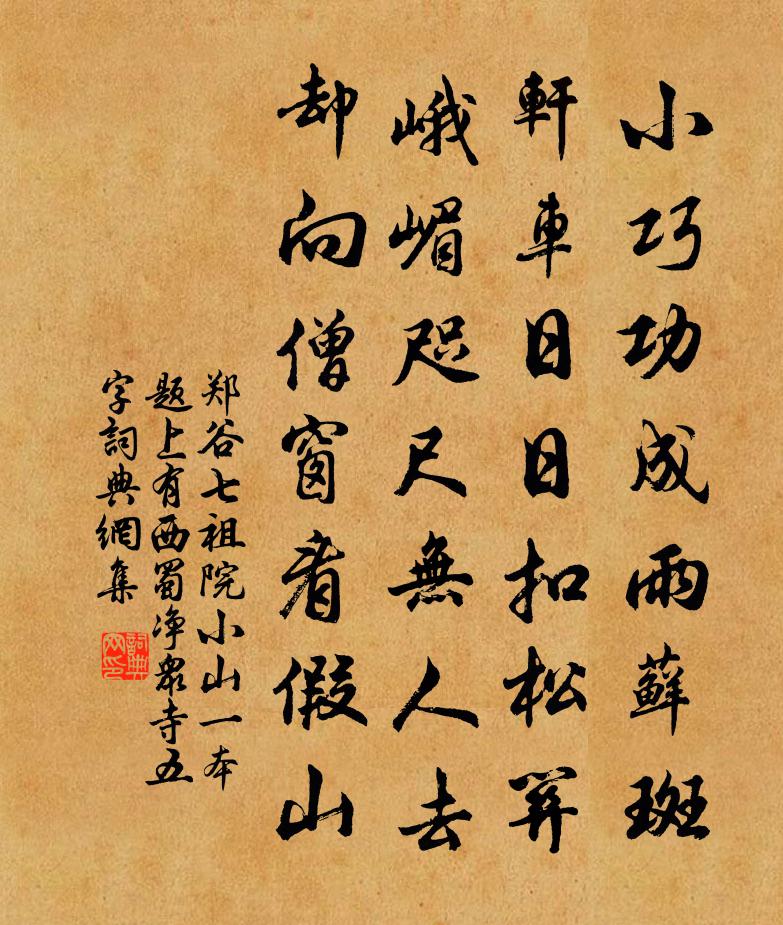 小巧功成雨蘚斑
軒車日日扣松關
峨嵋咫尺無人去
却向僧窗看假山
郑谷七祖院小山一本
题上有西蜀净眾寺五
字詞典網集
詞典网印